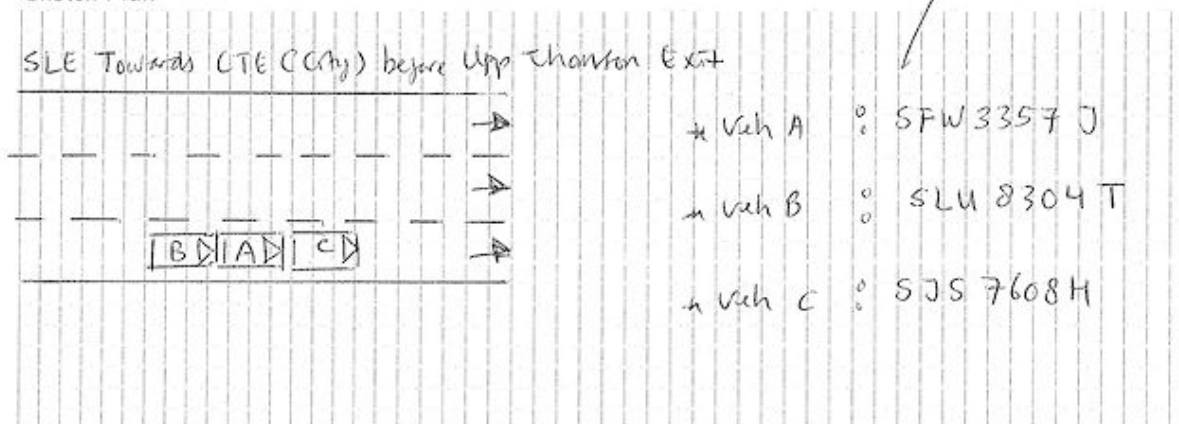 SLE Towards CTE (City) before Upp Thomson Exit
* Veh A : SFW 3357 J
* Veh B : SLU 8304 T
B A C
* Veh C : SJS 7608H